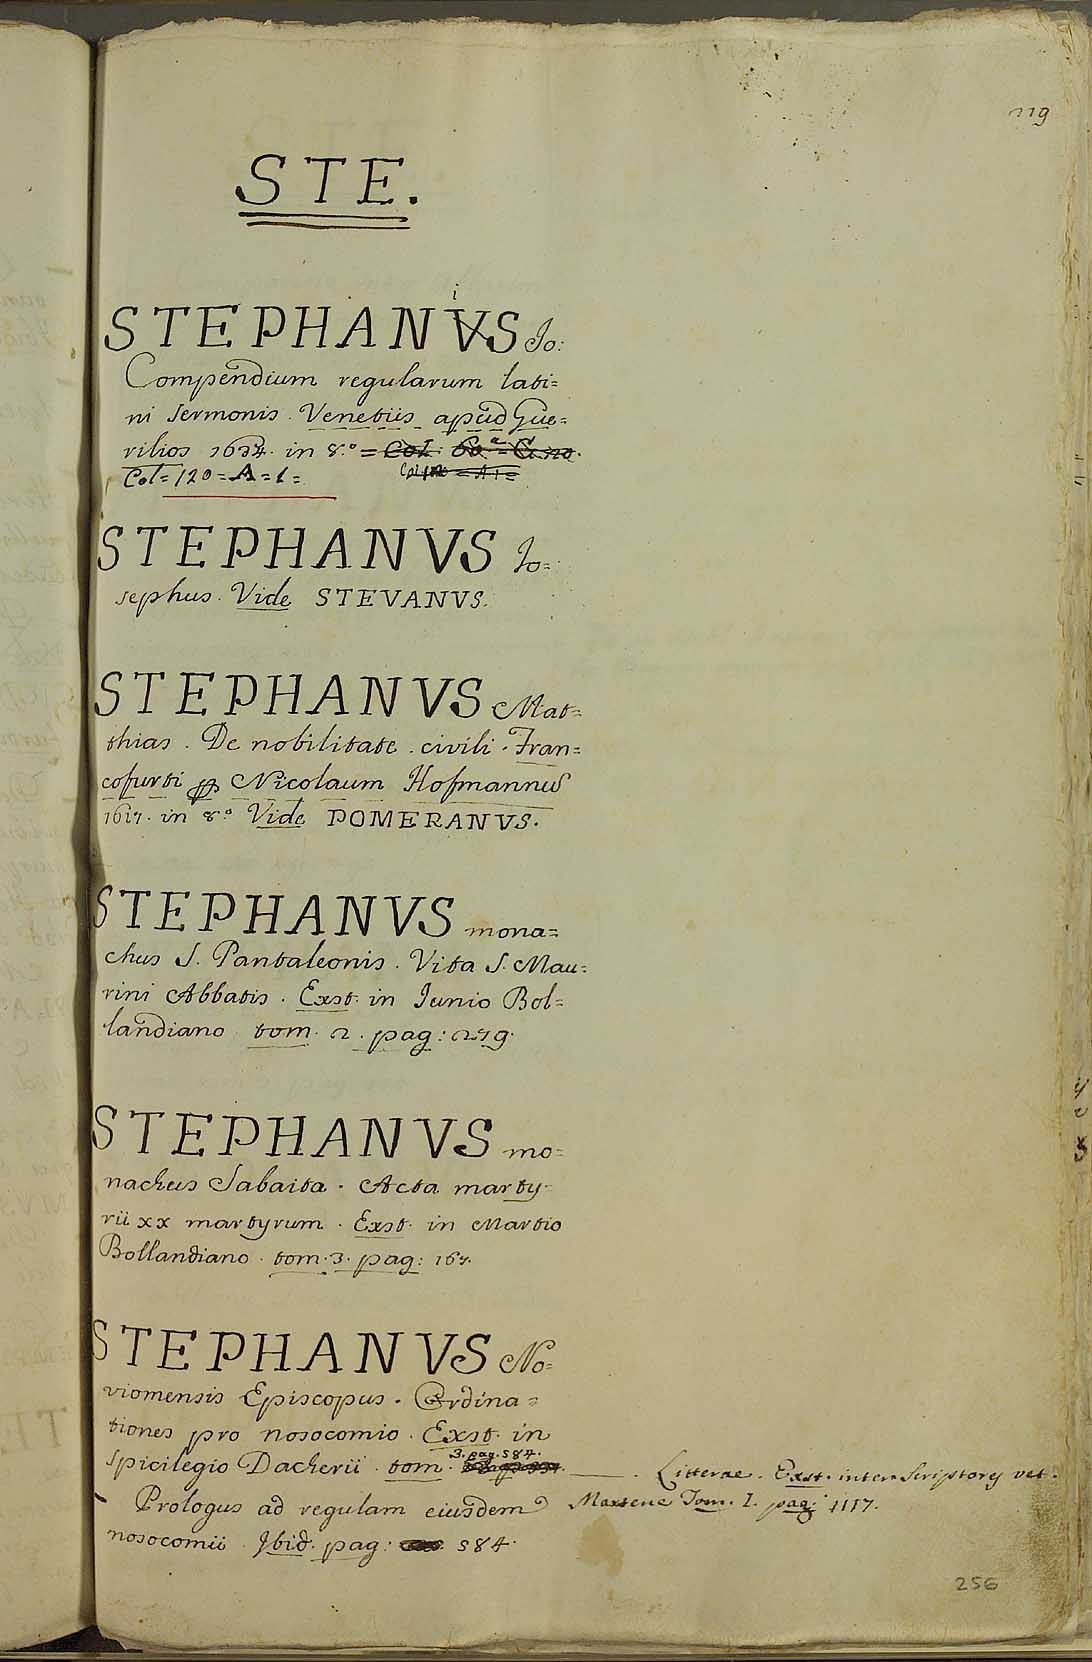 119
STE.
STEPHANVS Jo:
i
Compendium regularum lati=
ni sermonis. Venetiis apud Gue=
rilios 1634. in 8.º =
Col=120=A=1=
STEPHANVS Jo=
sephus. Vide STEVANVS.
STEPHANVS Mat=
thias. De nobilitate civili. Fran=
cofurti Nicolaum Hofmannus
1617. in 8.º Vide POMERANVS.
STEPHANVS mona=
chus S. Pantaleonis. Vita S. Mau=
rini Abbatis. Exst. in Iunio Bol=
landiano tom. 2. pag: 279.
STEPHANVS mo=
nachus Sabaita. Acta marty=
rii xx martyrum. Exst. in Martio
Bollandiano. tom. 3. pag: 167.
STEPHANVS No=
viomensis Episcopus. Ordina=
tiones pro nosocomio. Exst. in
3. pag. 584.
Spicilegio Dacherii. tom.
Litterae. Exst. inter Scriptores vet.
Prologus ad regulam eiusdem
Martene Tom. I. pag. 1117.
nosocomii. Ibid. pag: 584.
256